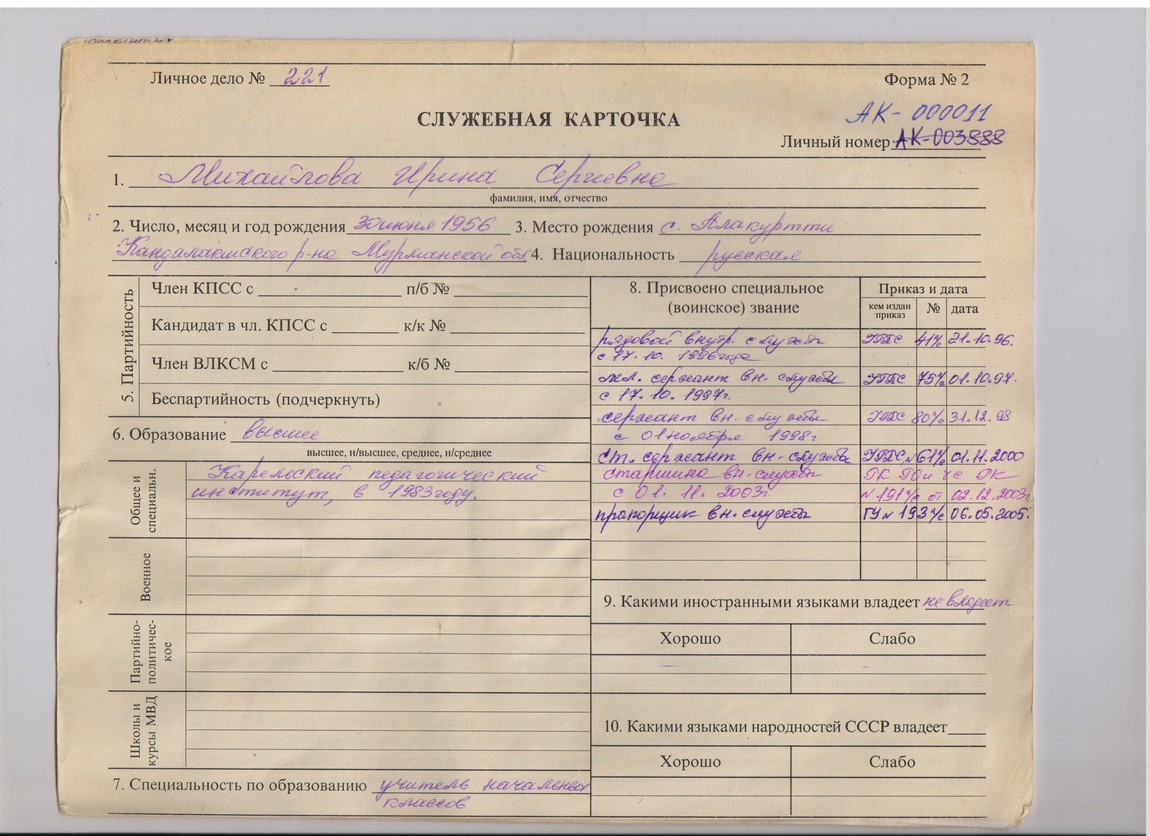 Личное дело № 221
Форма № 2
СЛУЖЕБНАЯ КАРТОЧКА
АК- 000011
Личный номер АК-003888
1. Михайлова Ирина Сергиевна
фамилия, имя, отчество
2. Число, месяц и год рождения 30 июня 1956 3. Место рождения с. Алакуртти
Кандалакшского р-на Мурманской обл 4. Национальность русская
5. Партийность
Член КПСС с п/б №
Кандидат в чл. КПСС с к/к №
Член ВЛКСМ с к/б №
Беспартийность (подчеркнуть)
6. Образование высшее
высшее, н/высшее, среднее, н/среднее
Общее и специальн.
Карельский педагогический
институт, в 1983 году.
Военное
Партийно-
политичес-
кое
Школы и
курсы МВД
7. Специальность по образованию учитель начальных
классов
8. Присвоено специальное
(воинское) звание
Приказ и дата
кем издан приказ № дата
рядовой внутр. службы УПС 41л/с 21.10.96.
с 17.10.1996 года
мл. сержант вн. службы УПС 75л/с 01.10.97.
с 17.10.1997г.
сержант вн. службы УПС 80л/с 31.12.98
с 01 ноября 1998г
ст. сержант вн. службы УПС №61л/с 01.11.2000
старшина вн. службы ГК ГО и ЧС РК
с 01.11.2003г. №191л/с от 02.12.2003г.
прапорщик вн. службы ГУ № 193л/с 06.05.2005.
9. Какими иностранными языками владеет не владеет
Хорошо Слабо
10. Какими языками народностей СССР владеет
Хорошо Слабо